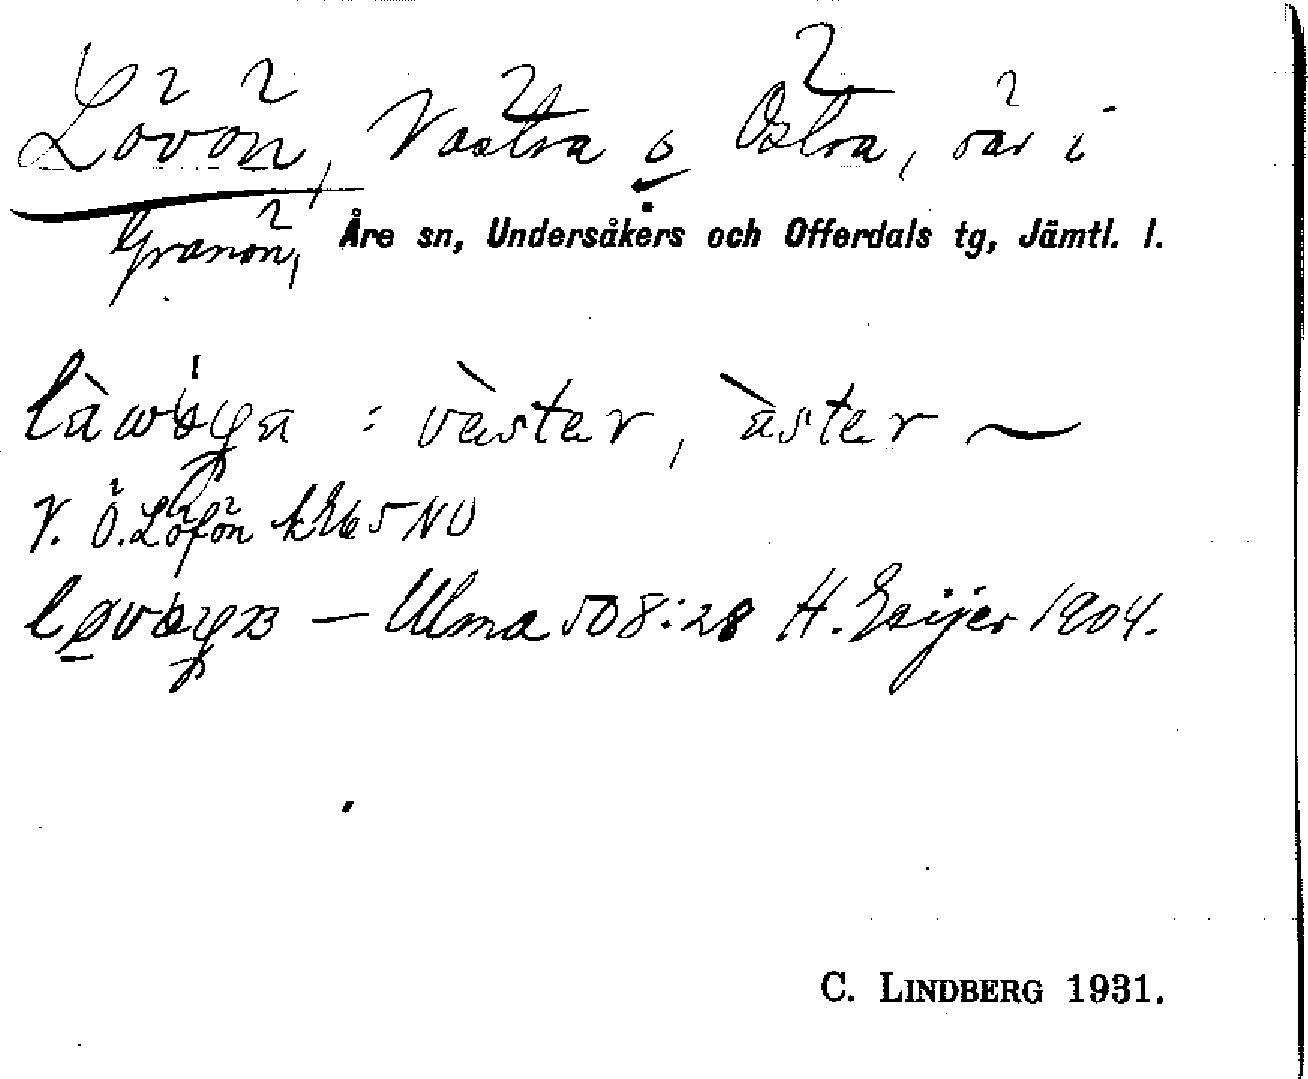 Lövön, Västra o Östra, öar i
Granön, Åre sn, Undersåkers och Offerdals tg, Jämtl. l.
: väster, äster ~
V. Ö. Löfön k 65 NO
— Ulma 508:28 H. Geijer 1904.
C. LINDBERG 1931.